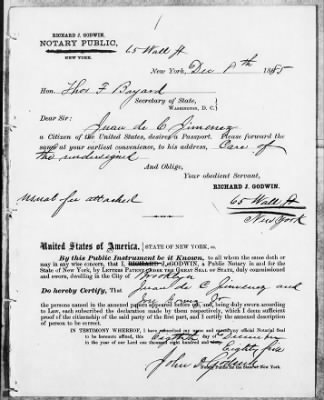 RICHARD J. GODWIN,
NOTARY PUBLIC,
NEW YORK.
65 Wall St
New York, Dec 8th 1885
Hon. Thos F Bayard
Secretary of State,
WASHINGTON, D. C.
Dear Sir:
Juan de C Jimenez
a Citizen of the United States, desires a Passport. Please forward the
same at your earliest convenience, to his address, Care of
the undersigned
And Oblige,
Your obedient Servant,
RICHARD J. GODWIN.
65 Wall St
New York
Usual fee attached
United States of America. STATE OF NEW YORK, ss.
By this Public Instrument be it Known, To all whom the same doth or
may in any wise concern, that I, RICHARD J. GODWIN, a Public Notary in and for the
State of New York, by LETTERS PATENT UNDER THE GREAT SEAL OF STATE, duly commissioned
and sworn, dwelling in the City of Brooklyn
Do hereby Certify, That Juan de C Jimenez and
Jr
the persons named in the annexed papers appeared before me, and, being duly sworn according to
Law, each subscribed the declaration made by them respectively, which I deem sufficient
proof of the citizenship of the said party of the first part, and I certify the annexed
description of person to be correct.
IN TESTIMONY WHEREOF, I have subscribed my name and my official Notarial Seal
to be hereunto affixed, this eighth day of December
in the year of our Lord one thousand eight hundred and Eighty five
John Godwin
Notary Public for the State of New York.